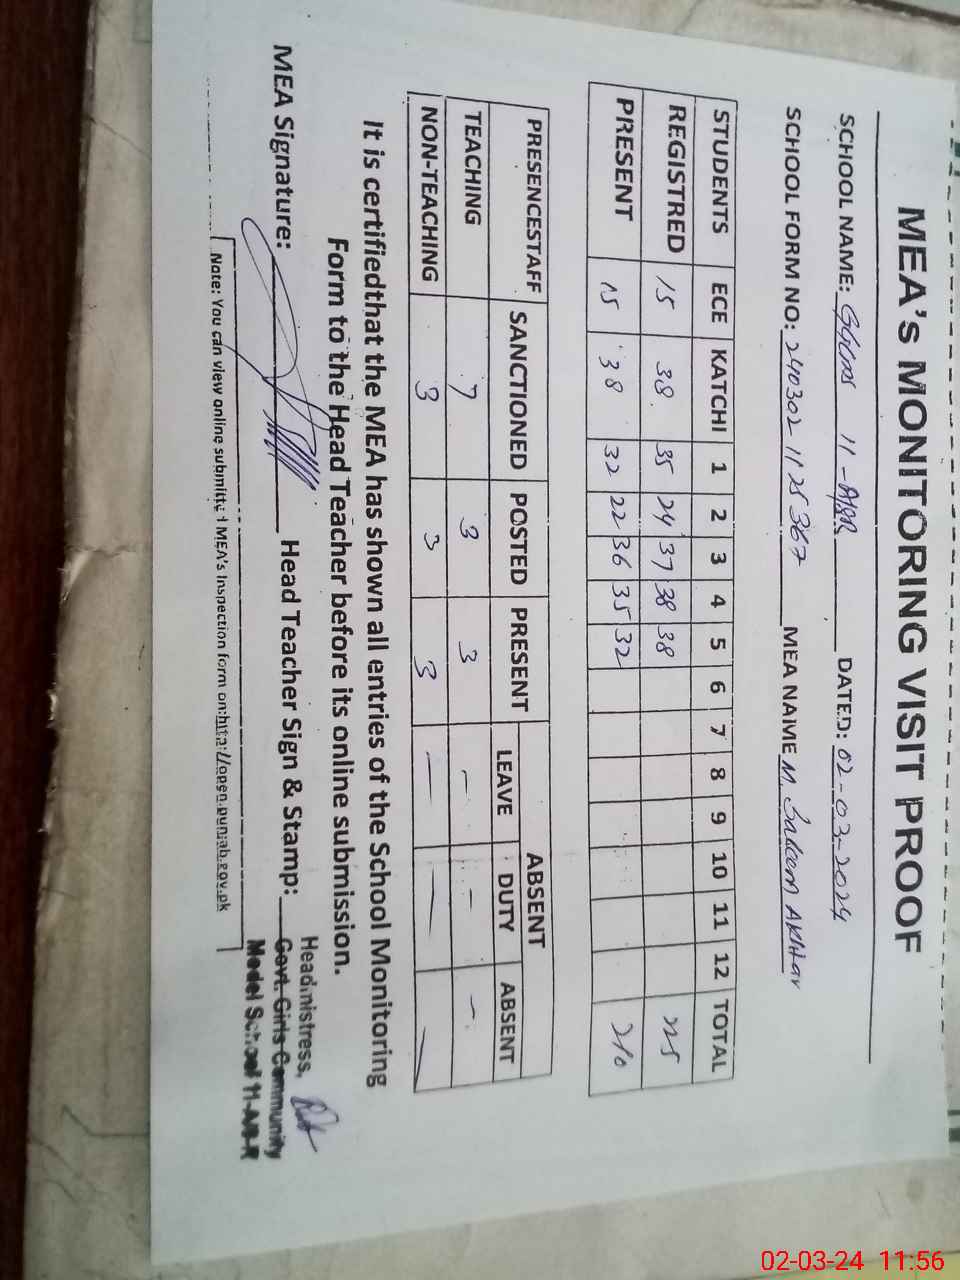 MEA's MONITORING VISIT PROOF
SCHOOL NAME: GGCMS 11-A/8R DATED: 02-03-2024
SCHOOL FORM NO: 240302 1125367 MEA NAME M. Saleem Akhtar
STUDENTS ECE KATCHI 1 2 3 4 5 6 7 8 9 10 11 12 TOTAL
REGISTRED 15 38 35 24 37 38 38 225
PRESENT 15 38 32 22 36 35 32 210
PRESENCESTAFF SANCTIONED POSTED PRESENT ABSENT
LEAVE DUTY ABSENT
TEACHING 7 3 3 - - -
NON-TEACHING 3 3 3 - - -
It is certifiedthat the MEA has shown all entries of the School Monitoring
Form to the Head Teacher before its online submission.
MEA Signature: Head Teacher Sign & Stamp:
Headmistress,
Govt. Girls Community
Model School 11-A/8-R
Note: You can view online submitted MEA's Inspection form on:http://open.punjab.gov.pk
02-03-24 11:56